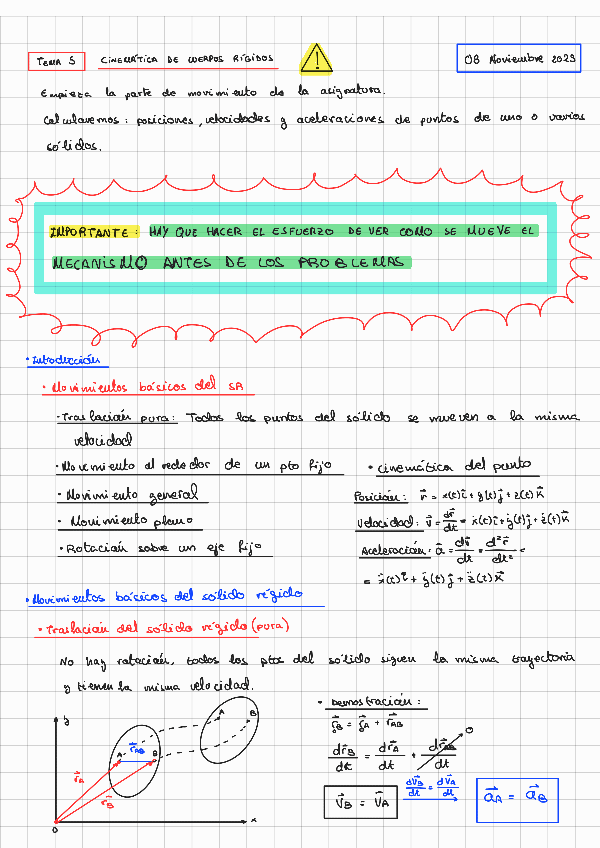 TEMA 5 CINEMÁTICA DE CUERPOS RÍGIDOS ! 08 Noviembre 2023
Empieza la parte de movimiento de la asignatura.
Calcularemos: posiciones, velocidades y aceleraciones de puntos de uno o varios
sólidos.
IMPORTANTE: HAY QUE HACER EL ESFUERZO DE VER COMO SE MUEVE EL
MECANISMO ANTES DE LOS PROBLEMAS
• Introducción
• Movimientos básicos del SR
- Traslación pura: Todos los puntos del sólido se mueven a la misma
velocidad
- Movimiento alrededor de un pto fijo
- Movimiento general
- Movimiento plano
- Rotación sobre un eje fijo
• Cinemática del punto
Posición: r⃗ = x(t)i⃗ + y(t)j⃗ + z(t)k⃗
Velocidad: v⃗ = dr⃗/dt = ẋ(t)i⃗ + ẏ(t)j⃗ + ż(t)k⃗
Aceleración: a⃗ = dv⃗/dt = d²r⃗/dt² =
= ẍ(t)i⃗ + ÿ(t)j⃗ + z̈(t)k⃗
• Movimientos básicos del sólido rígido
• Traslación del sólido rígido (pura)
No hay rotación, todos los ptos del sólido siguen la misma trayectoria
y tienen la misma velocidad.
y A B A B r⃗AB r⃗A r⃗B O x
• Demostración:
r⃗B = r⃗A + r⃗AB
dr⃗B/dt = dr⃗A/dt + dr⃗AB/dt 0
v⃗B = v⃗A dv⃗B/dt = dv⃗A/dt a⃗A = a⃗B